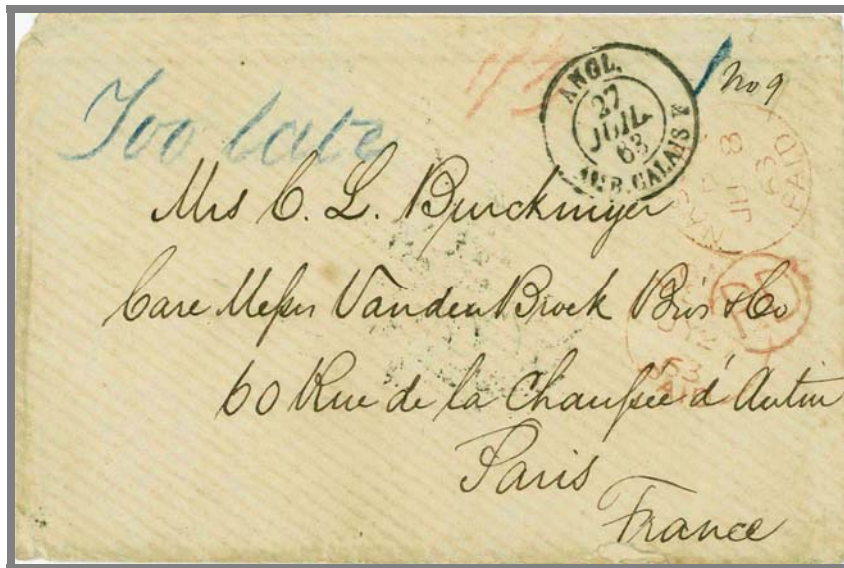 Too late
No 9
ANGL.
27
JUIL.
63
AMB. CALAIS F
PAID
63
PD
63
Mrs C. L. Burckmyer
Care Messrs VandenBroek Bros & Co
60 Rue de la Chaussee d'Antin
Paris
France